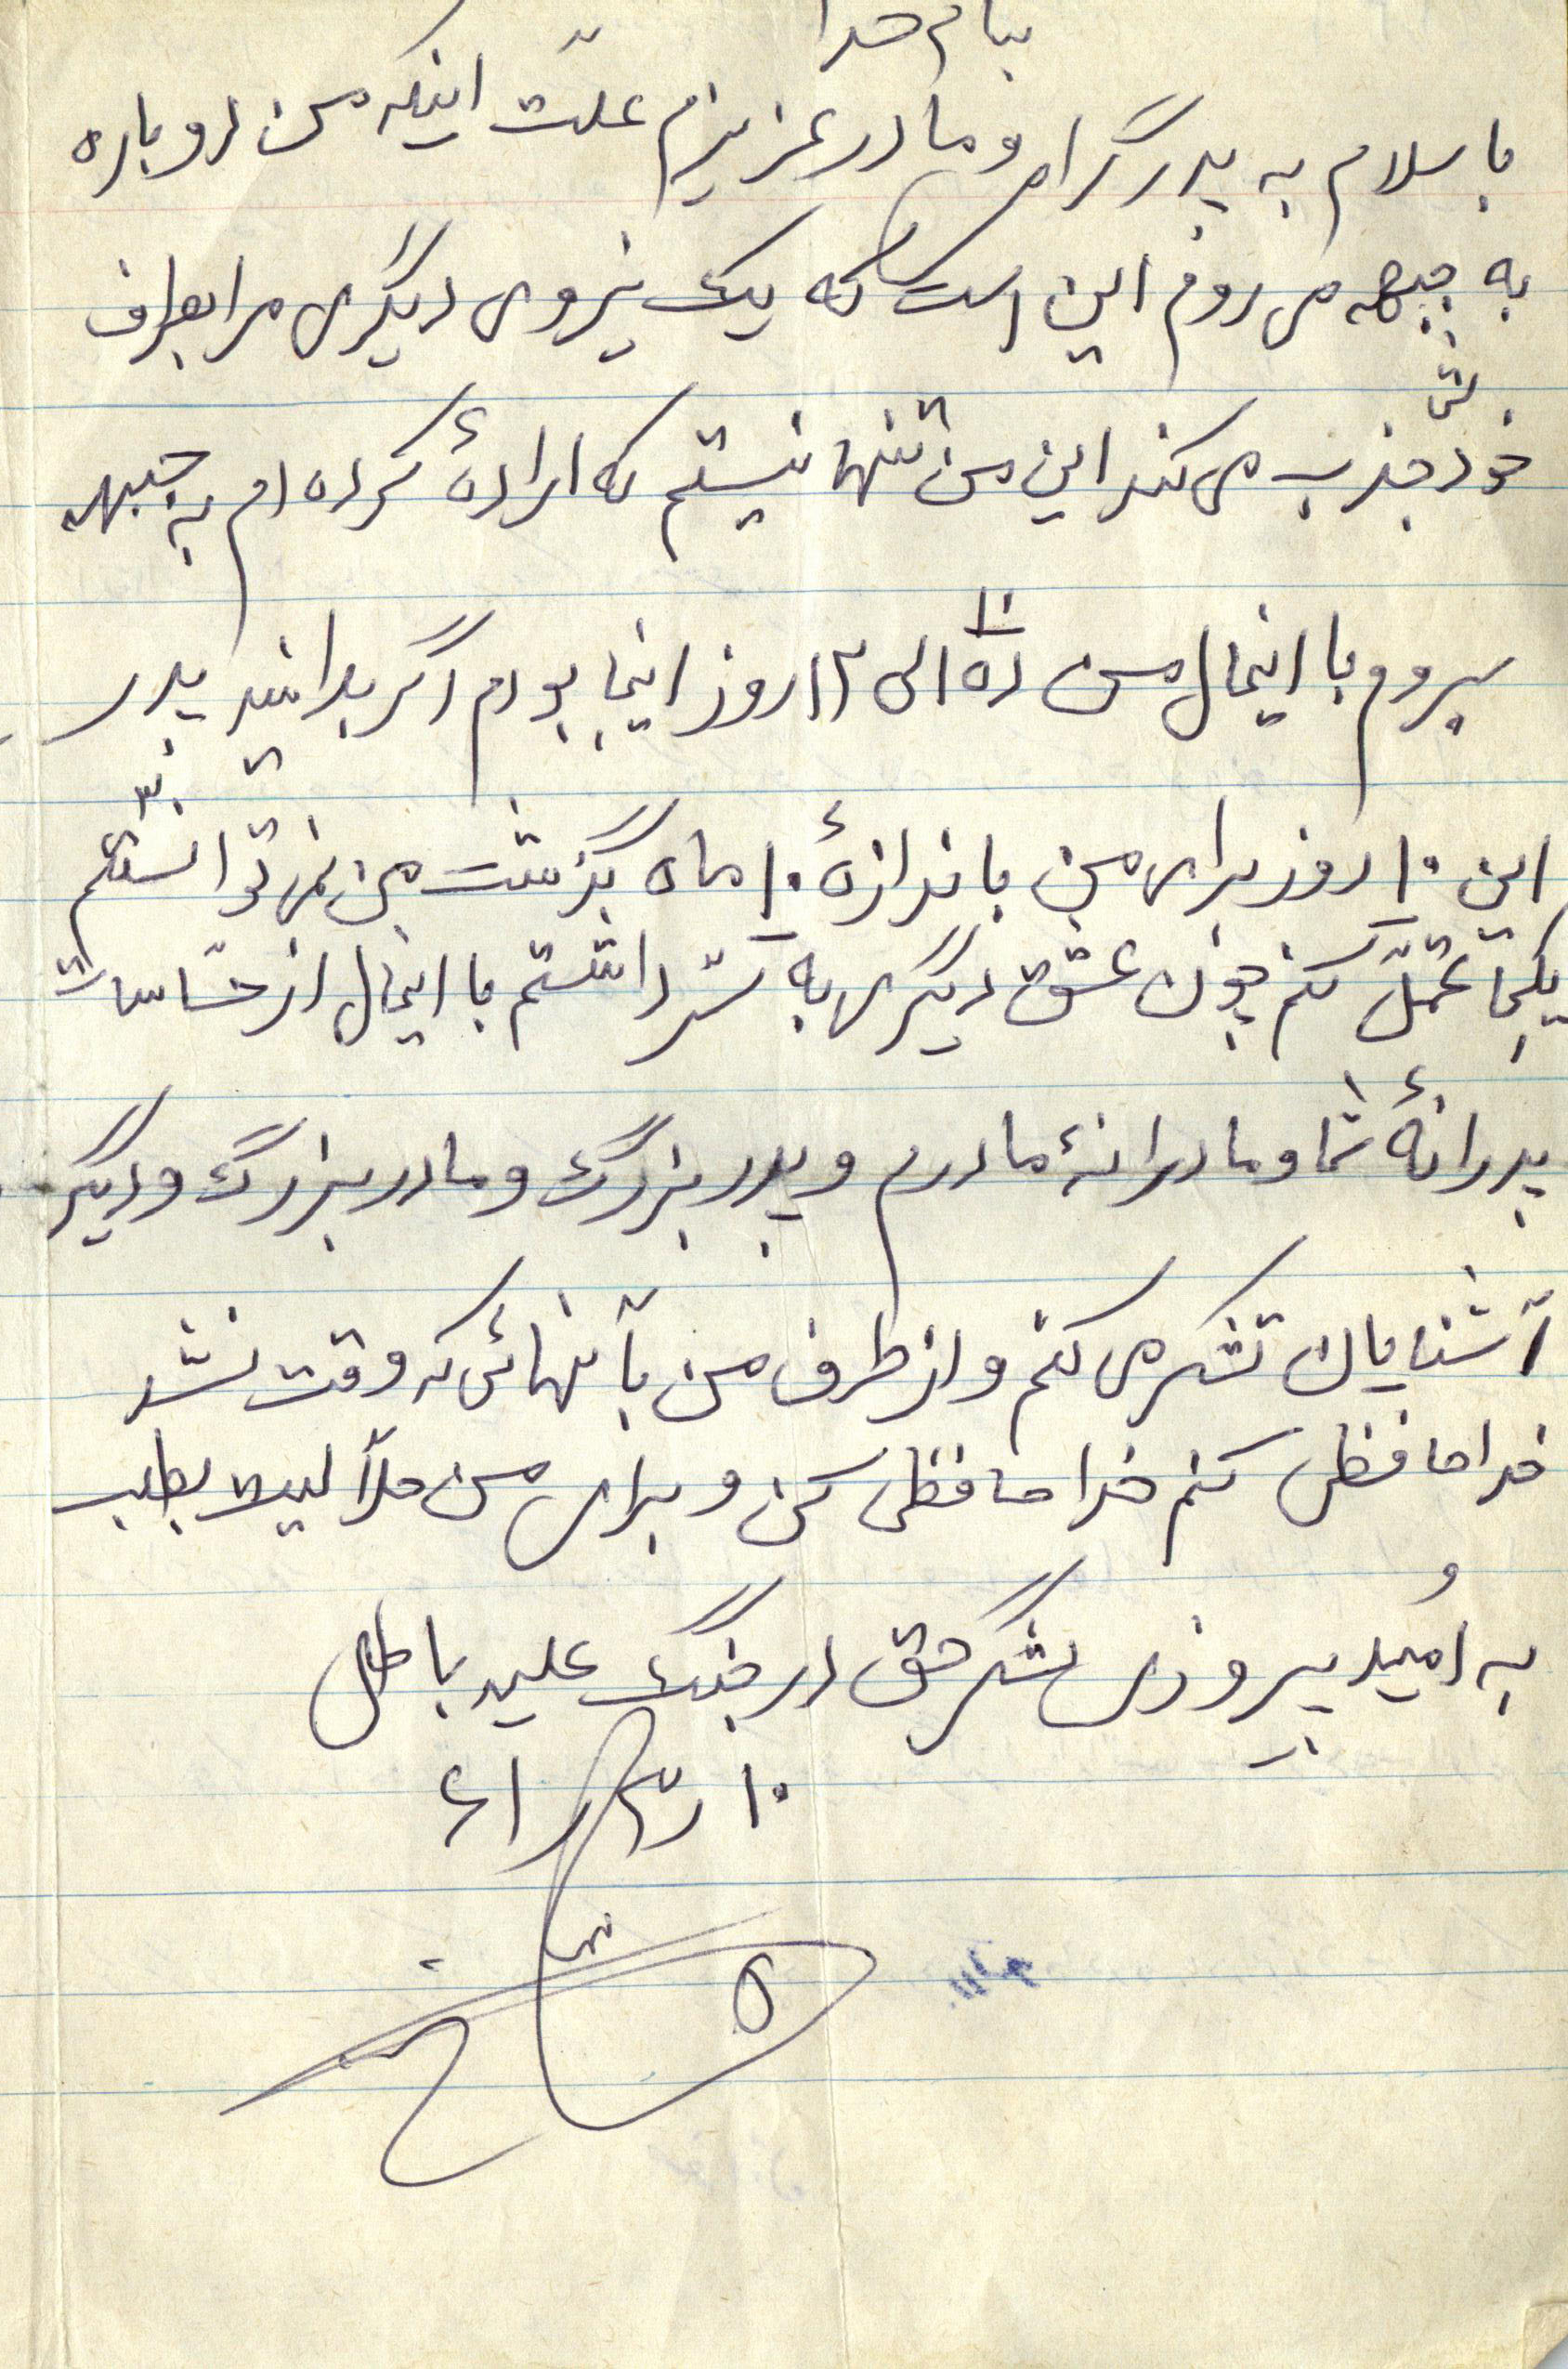 بنام خدا
با سلام به پدر گرامی و مادر عزیزم علّت اینکه من دوباره
به جبهه می روم این است که یک نیروی دیگری مرا بطرف
خودش جذب می کند این من تنها نیستم که ارادۀ کرده ام به جبهه
بروم با اینحال من ده ۱۰ الی ۱۲ روز اینجا بودم اگر بدانید پدر
این ۱۰ روز برای من باندازۀ ۱۰ ماه بگذشت من نمی توانستم
یکجا تحمّل کنم چون عشق دیگری به سر داشتم با اینحال از حسّاسات
پدرانۀ شما و مادرانۀ مادرم و پدر بزرگ و مادر بزرگ و دیگر
آشنایان تشکر می کنم و از طرف من بآنهائی که وقت نشد
خداحافظی کنم خداحافظی کن و برای من حلالیت بطلب
به اُمید پیروزی لشگر حق در جنگ علیه باطل
۱۰